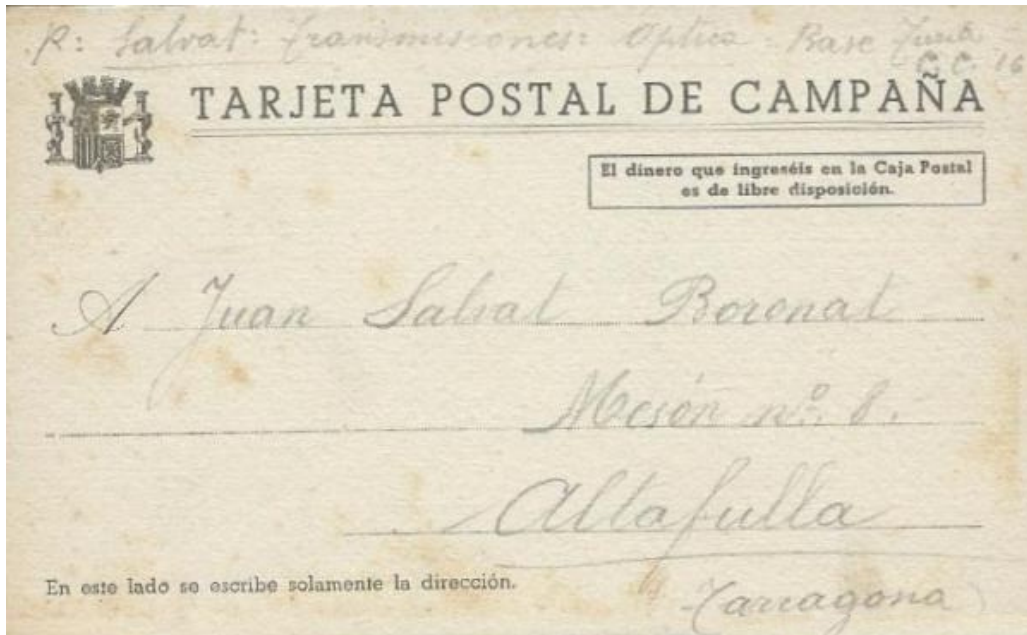 R: Salvat: Transmisiones: Optica: Base Turia
C.C. 16
TARJETA POSTAL DE CAMPAÑA
El dinero que ingreséis en la Caja Postal
es de libre disposición.
A Juan Salvat Boronat
Mesón nº. 8.
Altafulla
En este lado se escribe solamente la dirección.
Tarragona